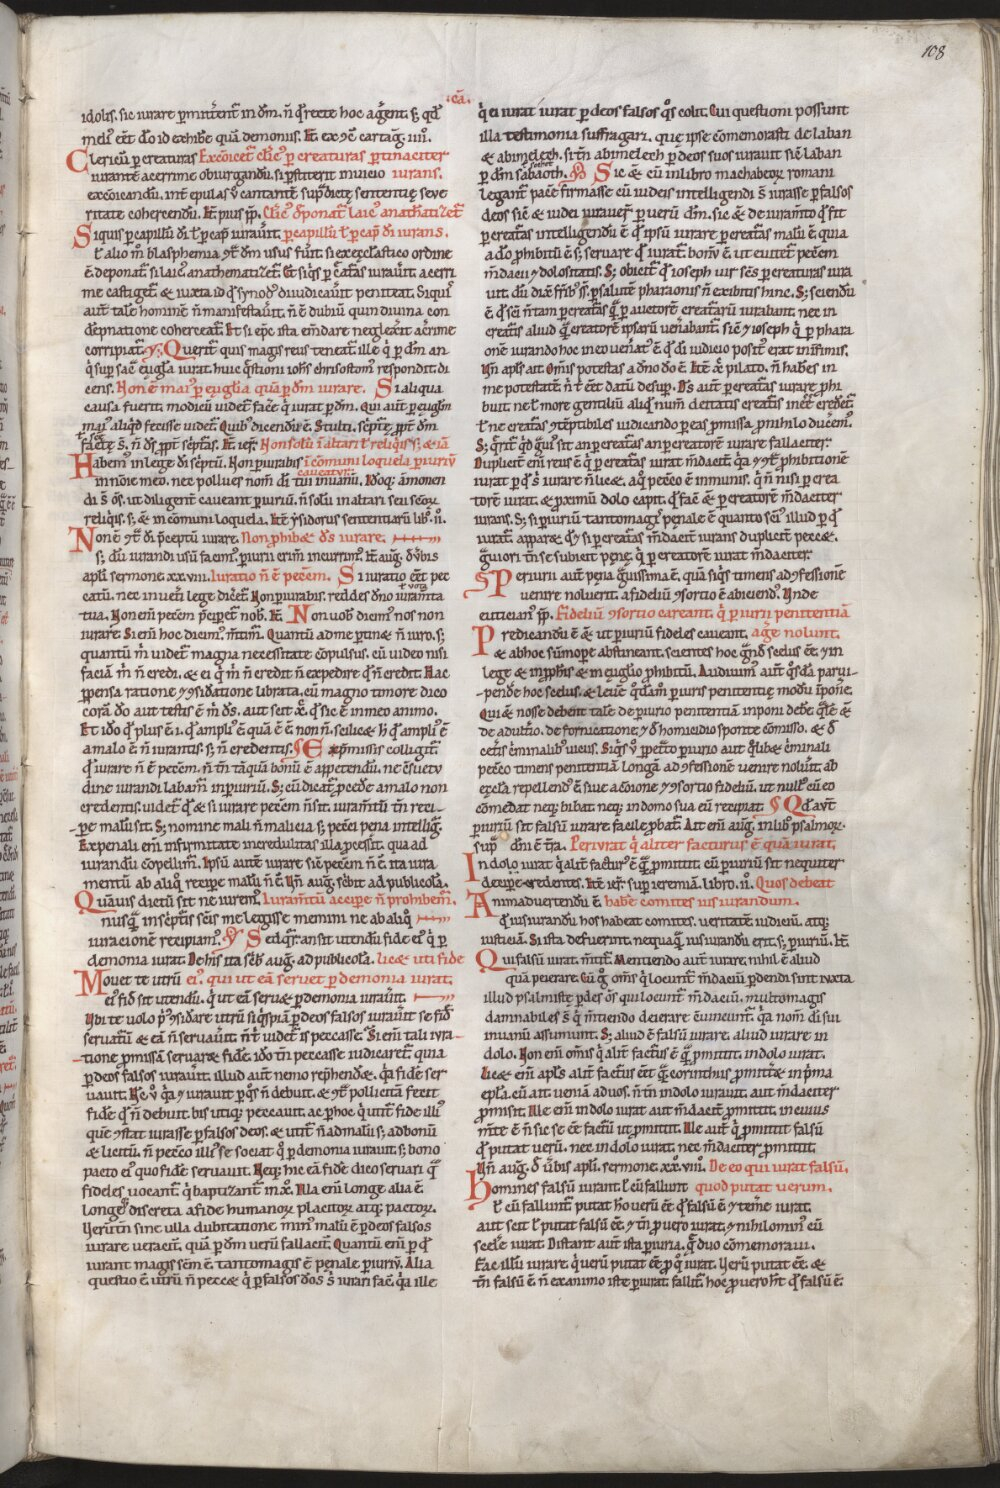 108
.ca.
idolis. sic iurare permitterent in dm̄. n̄ q̄ recte hoc agerent. s; qd̄
meli᾽ eēt dō id exhibe quā demoniis. It̄ ex 9c̄ cartag̅. iiii.
Clericū per creaturas Excōicet᷑ cleric᾽ p creaturas pertinaciter
iurantē acerrime obiurgandū. si perstiterit in uicio iurans.
excōicandū. int̄ epulas ū cantantē supdictę sententię seue
ritate cohercendū. It̄ pius pp̄. Cleric᾽ deponat᷑ laic᾽ anathatizet᷑
Siquis per capillū di ł per cap̄ iurauerit. per capillū ł per cap̄ di iurans.
ł alio m̄ blasphemia 9t̄ dm̄ usus fuerit. si ex ęcclesiastico ordine
ē deponat᷑. si laic᾽ anathematizet᷑. Et siq̄s p̱ creat̄as iurauerit. acerri
me castiget᷑. & iuxta id q̄ synod᾽ diiudicauerit peniteat. Siquis
aut̄ tale hominē n̄ manifestauerit. n̄ ē dubiū quin diuina con
dēpnatione coherceat᷑. Et si ep̄c ista em̄dare neglexerit acrime
corripiat᷑. Querit᷑ quis magis reus teneat᷑. ille q̄ p̱ dm̄ an
q̄ sup sacra euglia iurat. huic q̄stioni ioh̄s chrisostom᾽ respondit. di
cens. Non ē mai᾽ p̱ euglia quā p̱ dm̄ iurare. Si aliqua
causa fuerit. modicū videt᷑ facē q̄ iurat p̱ dm̄. Qui aut̄ p̱ euglm̄
mai᾽ aliqd fecisse videt᷑. Quib᾽ dicendū ē. Stulti. script̄ę ppt̄ dm̄
facte s̄. n̄ ds̄ ppt̄ script̄as. It̄ ier̄. Non solū ī altari ł reliqiis s; & īā
Habem᾽ in lege di scriptū. Non piurabis ī cōmuni loquela piuriū
in nōie meo. nec pollues nom̄ di tui in uanū. Idoq; āmonen caueatur
di s̄ ōs. ut diligent̄ caueant piuriū. n̄ solū in altari seu sc̄or̄
reliqis. s; & in cōmuni loquela. It̄ ysidorus sententiarū lib̄. ii.
Non ē 9t̄ di p̄ceptū iurare. Non phibet ds̄ iurare.
s; dū iurandi usū facim᾽. piurii crim̄ incurrim᾽. It̄ aug̅. d ūbis
apli sermone. xx.viii. Iuratio n̄ ē peccm̄. Si iuratio eēt pec
catū. nec in ueteri lege diceret᷑. Non piurabis. reddes dn̄o iuram̄ta
tua. Non eni peccm̄ p̄ciperet᷑ nob̄. It̄. Non uob̄ dicim᾽ nos non
iurare. Si eni hoc dicim᾽. m̄tim᾽. Quantū ad me ptinet n̄ iuro. s;
quantū m̄ videt᷑ magna necessitate cōpulsus. cū video nisi
faciā m̄ n̄ credi. & ei q̄ m̄ n̄ credit n̄ expedire q̄ n̄ credit. Hac
ppensa ratione 9sidatione librata. cū magno timore dico
corā do aut testis ē m̄ ds̄. aut scit x̄c̄. q̄ sic ē in meo animo.
amalo ē n̄ iurantis. s; n̄ credentis. Ex p̄missis colligit᷑
q̄ iurare n̄ ē peccm̄. n̄ tn̄ tāquā bonū ē appetendū. ne 9suetu
dine iurandi labam᾽ in piuriū. S; cū dicat᷑ p̱cede amalo non
credentis. videt᷑ q̄ & si iurare peccm̄ n̄ sit. iuram̄tū tn̄ reci
pe malū sit. S; nomine mali n̄ malicia s; peccati pena intelligit᷑.
Ex penali eni infirmitate incredulitas illa pcessit. qua ad
iurandū cōpellim᾽. Ipsū autē iurare sicut peccm̄ n̄ ē. ita iura
mentū ab aliq̄ recipe malū n̄ ē. Un̄ aug̅. scribit ad publicolā.
Quāuis dictū sit ne iurem᾽. Iuram̄tū accipe n̄ prohibem᾽.
nusq̄ in scriptis sc̄is me legisse memini ne ab aliq̄
iuracionē recipiam᾽. Sed q̄r̄ an sit utendū fide ei᾽ q̄ p̱
demonia iurat. De his ita scrib̄ aug̅. ad publicolā. licet uti fide
Mouet te utrū ei᾽. qui ut eā seruet p̱ demonia iurat.
ei᾽ fid̄ sit utendū. q̄ ut eā seruet p̱ demonia iurauerit.
Ubi te uolo p̱᾽ 9sidare utrū si q̄spiā p̱ deos falsos iurauerit se fid̄
seruatū & eā n̄ seruauerit. n̄ t̄ videt᷑ is peccasse. Si eni tali iura
tione pmissā seruaret fidē. ido tn̄ peccasse iudicaret᷑ quia
p̱ deos falsos iurauit. illud aut̄ nemo reph̄endet. q̄a fidē ser
fidē q̄ n̄ debuit. bis utiq; peccauit. ac p̱ hoc q̄ utit᷑ fide illi᾽
quē 9stat iurasse p̱ falsos deos. & utit᷑ n̄ ad malū s; ad bonū
& licitū. n̄ peccato illi᾽ se sociat q̄ p̱ demonia iurauit. s; bono
pacto ei᾽ quo fidē seruauit. Neq; hic eā fidē dico seruari q̄
fideles uocant᷑ q̄ baptizant᷑ in x̄o. Illa eni longe alia ē.
longe discreta a fide humanor̄ placitor̄ atq; pactor̄.
Uerūtn̄ sine ulla dubitatione min᾽ malū ē p̱ deos falsos
iurare veracit̄. quā p̱ dm̄ verū fallacit̄. Quantū eni p̱ q̄
iurant magis sc̄m ē. tanto magis ē penale piuriū. Alia
questio ē utrū n̄ peccet q̄ p̱ falsos dōs s̄ iurari facit q̄a ille
q̄ ei iurat iurat p̱ deos falsos q̄s colit. Cui questioni possunt
illa testimonia suffragari. quę ipse cōmemorasti de laban
& abimelech. si tn̄ abimelech p̱ deos suos iurauit sicut laban
p̱ dm̄ sabaoth. Sic & cū in libro machabeor̄ romani
legant᷑ pacē firmasse cū iudeis intelligendi s̄ iurasse p̱ falsos
deos sicut & iudei iurauer̄ p̱ uerū dm̄. sic & de iuram̄to q̄ fit
p̱ creat̄as intelligendū ē q̄ ipsū iurare p̱ creat̄as malū ē. quia
a do phibitū ē. s; seruare q̄ iurat᷑ bonū ē ut euitet᷑ peccm̄
m̄dacii 9 dolositatis. S; obicit᷑ q̄ ioseph uir sc̄s p̱ creaturas iura
uit. dū dix̄ frib᾽ s᾽. p̱ salutē pharaonis n̄ exibitis hinc. S; sciendū
ē q̄ sc̄i n̄ tam p̱ creat̄as q̄ p̱ auctorē creat̄arū iurabant. nec in
creat̄is aliud q̄ creatorē ipsarū venerabant᷑. sicut 9 ioseph q̄ p̱ phara
onē iurando hoc in eo venerat᷑ ē q̄ di iudicio posit᾽ erat in infimis.
Un̄ apls ait. Omīs potestas a dn̄o do ē. It̄ xc̄ pilato. n̄ haberes in
me potestatē. n̄ t̄ eēt datū desup. Ds̄ aut̄ p̱ creat̄as iurare phi
buit. ne ł more gentiliū aliq̄ num̄ deitatis creat̄is inesse credet᷑.
ł ne creat̄as 9tēptibiles iudicando p̱ eas pmissa p nihilo ducem᾽.
S; q̄rit᷑ qd̄ gui᾽ sit an p̱ creat̄as an p̱ creatorē iurare fallacit̄.
Duplicit̄ eni reus ē q̄ p̱ creat̄as iurat m̄dacit̄. q̄a & 9t̄ phibitionē
iurat p̱ q̄ s̄ iurare n̄ licet. a quo peccato ē inmunis. q̄ n̄ nisi p̱ crea
torē iurat. & pximū dolo capit. q̄ facit & p̱ creatorē m̄dacit̄
iurans. S; si piuriū tanto magis penale ē quanto sc̄i᾽ illud p̱ q̄
iurat᷑. apparet q̄ 9 si p̱ creat̄as m̄dacit̄ iurans duplicit̄ peccet.
guiori tn̄ se subicit penę. q̄ p̱ creatorē iurat m̄dacit̄.
Periurii aut̄ pena guissima ē. qua siq̄s timens ad 9fessionē
venire noluerit. a fideliū 9sortio ē abiciend᾽. Unde
eutician᾽ pp̄. Fideliū 9sortio careant. q̄ p̱ iurii penitentiā
Predicandū ē & ut piuriū fideles caueant. agere nolunt.
& ab hoc sūmope abstineant. scientes hoc gnd̄ scelus eē. 9 in
lege & in pphis & in euglio phibitū. Audiuim᾽ aut̄ q̄sdā parui
pende hoc scelus. & leue q̄dam᾽ piuris penitentię modū īponē.
Qui & nosse debent talē de piurio penitentiā inponi debē q̄lē &
de adulterio. de fornicatione. 9 d homicidio sponte cōmisso. & d
cet̄is crīminalib᾽ viciis. Siq̄s ū ppetrato piurio aut q̄libet crīminali
peccato timens penitentiā longā ad 9fessionē venire noluerit. ab
ęccla repellend᾽ ē siue a cōione 9 9sortio fideliū. ut null᾽ cū eo
cōmedat neq; bibat. neq; in domo sua eū recipiat. Qd̄ aut̄
piuriū sit falsū iurare facile pbat᷑. Ait eni aug̅. in lib̄ psalmor̄.
sup dni ē t̄ra. Periurat q̄ aliter facturus ē quā iurat.
In dolo iurat q̄ alit̄ factur᾽ ē q̄ pmittit. cū piuriū sit nequiter
decipe credentes. It̄ ier̄. sup ieremiā. libro. ii. Quos debeat
Animaduertendū ē. habe comites ius iurandum.
q̄ iusiurandū hos habeat comites. veritatē. iudiciū. atq;
iusticiā. Si ista defuerint. nequaq̄ iusiurandū erit. s; piuriū. It̄.
Qui falsū iurat. m̄tit᷑. Mentiendo aut̄ iurare. nihil ē aliud
quā peierare. Cū g̊ om̄s q̄ locunt᷑ m̄daciū pdendi sint iuxta
illud psalmiste pdes ōs qui locunt᷑ m̄daciū. multo magis
damnabiles s̄ q̄ m̄tiendo deierare 9uincunt᷑. q̄a nom̄ di sui
in uanū assumunt. S; aliud ē falsū iurare. aliud iurare in
dolo. Non eni om̄is q̄ alit̄ factur᾽ ē q̄ pmittit. in dolo iurat.
licet eni apls alit̄ factur᾽ eēt q̄ corinthiis pmittit in pma
epla. cū ait. veniā ad uos. n̄ tn̄ in dolo iurauit. aut m̄daciter
pmisit. Ille eni in dolo iurat aut m̄dacit̄ pmittit. in cuius
m̄te ē n̄ sic se eē factū ut pmittit. Ille aut̄ q̄ pmittit falsū
q̄ putat verū. nec in dolo iurat. nec m̄daciter pmittit.
Un̄ aug̅. d ūbis apli. sermone. xx. viii. De eo qui iurat falsū.
homines falsū iurant. ł cū fallunt᷑ quod putat verum.
ł cū fallunt᷑. putat ho verū eē q̄ falsū ē. 9 temere iurat.
aut scit ł putat falsū eē. 9 tn̄ p uero iurat. 9 nihilomin᾽ cū
scelere iurat. Distant aut̄ ista piuria. q̄ duo cōmemoraui.
Fac illū iurare. q̄ verū putat eē p q̄ iurat. Verū putat eē. &
tn̄ falsū ē. n̄ ex animo iste piurat. fallit᷑. hoc p uero h̄t q̄ falsū ē.